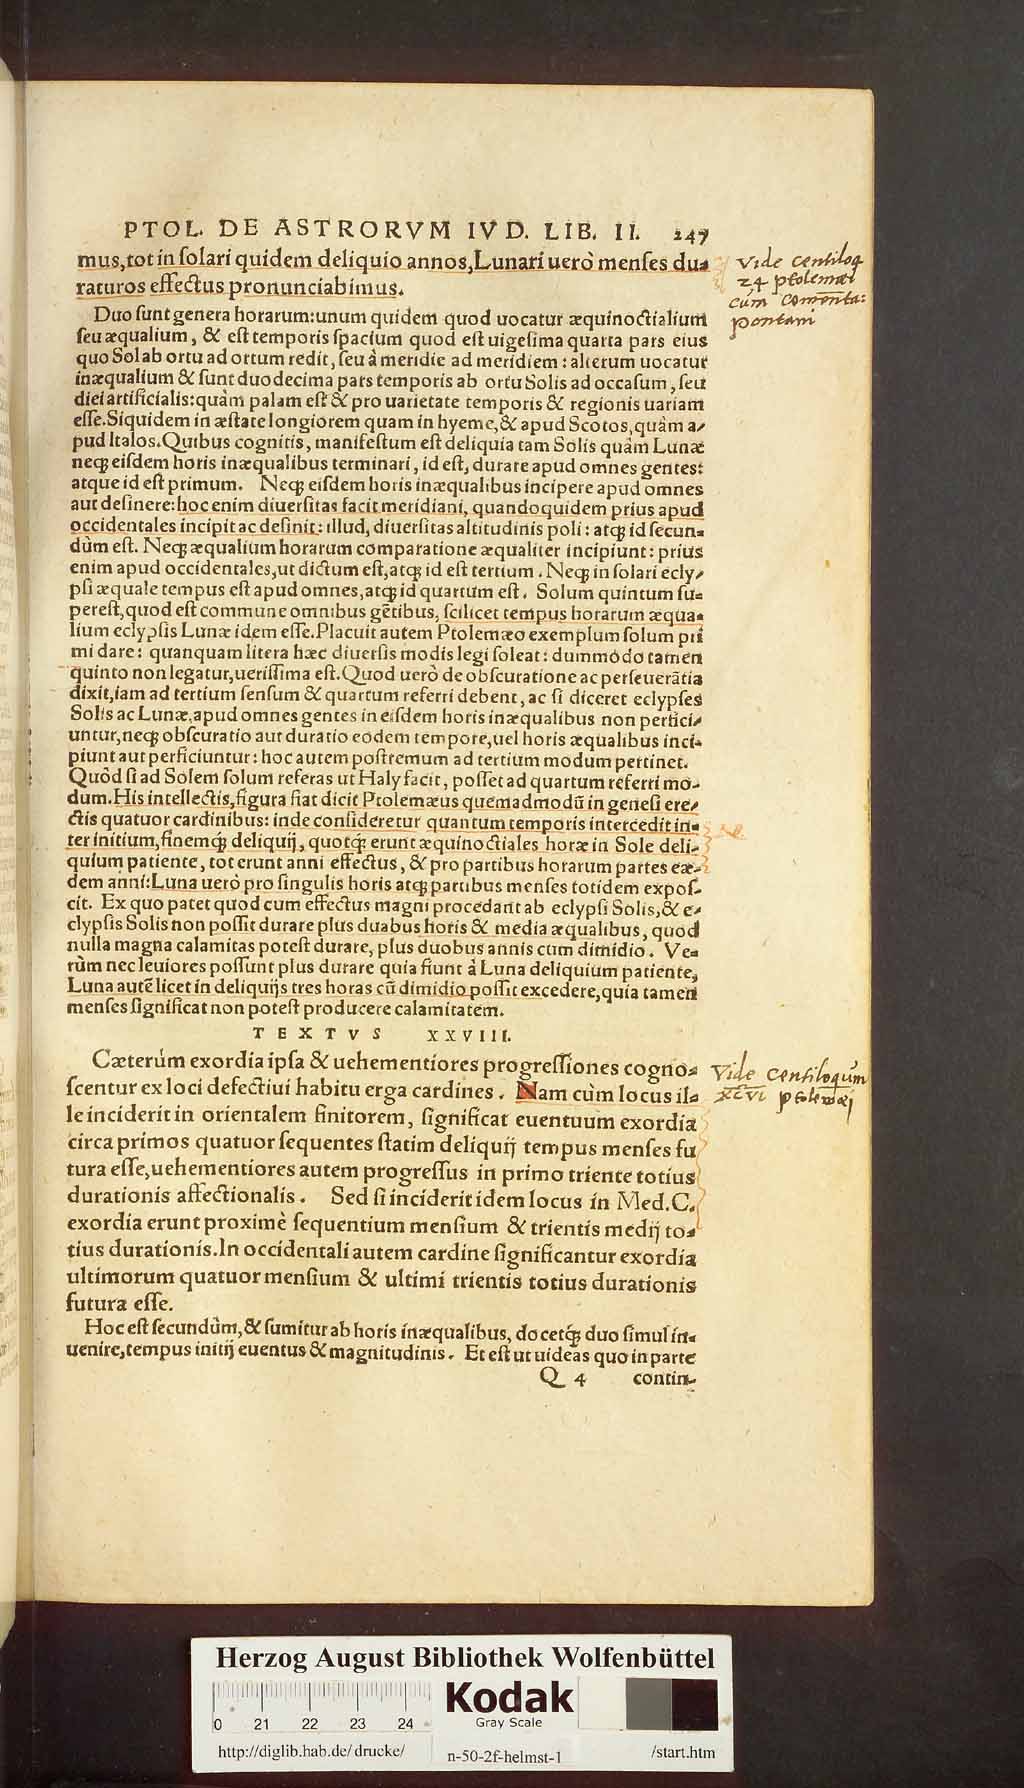 PTOL. DE ASTRORVM IVD. LIB. II. 247
mus, tot in solari quidem deliquio annos, Lunari uerò menses du⸗
raturos effectus pronunciabimus.
Vide Centiloq
24 ptolemæi
cum commenta:
pontani
Duo sunt genera horarum: unum quidem quod uocatur æquinoctialium
seu æqualium, & est temporis spacium quod est uigesima quarta pars eius
quo Sol ab ortu ad ortum redit, seu à meridie ad meridiem: alterum uocatur
inæqualium & sunt duodecima pars temporis ab ortu Solis ad occasum, seu
diei artificialis: quàm palam est & pro uarietate temporis & regionis uariam
esse. Siquidem in æstate longiorem quam in hyeme, & apud Scotos, quàm a⸗
pud Italos. Quibus cognitis, manifestum est deliquia tam Solis quàm Lunæ
neq; eisdem horis inæqualibus terminari, id est, durare apud omnes gentes:
atque id est primum. Neq; eisdem horis inæqualibus incipere apud omnes
aut desinere: hoc enim diuersitas facit meridiani, quandoquidem prius apud
occidentales incipit ac definit: illud, diuersitas altitudinis poli: atq; id secun⸗
dùm est. Neq; æqualium horarum comparatione æqualiter incipiunt: prius
enim apud occidentales, ut dictum est, atq; id est tertium. Neq; in solari ecly⸗
psi æquale tempus est apud omnes, atq; id quartum est. Solum quintum su⸗
perest, quod est commune omnibus gētibus, scilicet tempus horarum æqua⸗
lium eclypsis Lunæ idem esse. Placuit autem Ptolemæo exemplum solum pri
mi dare: quanquam litera hæc diuersis modis legi soleat: dummòdo tamen
quinto non legatur, uerissima est. Quod uerò de obscuratione ac perseuerātia
dixit, iam ad tertium sensum & quartum referri debent, ac si diceret eclypses
Solis ac Lunæ, apud omnes gentes in eisdem horis inæqualibus non perfici⸗
untur, neq; obscuratio aut duratio eodem tempore, uel horis æqualibus inci⸗
piunt aut perficiuntur: hoc autem postremum ad tertium modum pertinet.
Quòd si ad Solem solum referas ut Haly facit, posset ad quartum referri mo⸗
dum. His intellectis, figura fiat dicit Ptolemæus quemadmodū in genesi ere⸗
ctis quatuor cardinibus: inde consideretur quantum temporis intercedit in⸗
ter initium, finemq; deliquij, quotq; erunt æquinoctiales horæ in Sole deli⸗
quium patiente, tot erunt anni effectus, & pro partibus horarum partes eæ⸗
dem anni: Luna uerò pro singulis horis atq; partibus menses totidem expos⸗
cit. Ex quo patet quod cum effectus magni procedant ab eclypsi Solis, & e⸗
clypsis Solis non possit durare plus duabus horis & media æqualibus, quod
nulla magna calamitas potest durare, plus duobus annis cum dimidio. Ve⸗
rùm nec leuiores possunt plus durare quia fiunt à Luna deliquium patiente,
Luna autē licet in deliquijs tres horas cū dimidio possit excedere, quia tamen
menses significat non potest producere calamitatem.
TEXTVS XXVIII.
Cæterùm exordia ipsa & uehementiores progressiones cogno⸗
scentur ex loci defectiui habitu erga cardines. Nam cùm locus il⸗
le inciderit in orientalem finitorem, significat euentuum exordia
circa primos quatuor sequentes statim deliquij tempus menses fu
tura esse, uehementiores autem progressus in primo triente totius
durationis affectionalis. Sed si inciderit idem locus in Med. C.
exordia erunt proximè sequentium mensium & trientis medij to⸗
tius durationis. In occidentali autem cardine significantur exordia
ultimorum quatuor mensium & ultimi trientis totius durationis
futura esse.
Vide Centiloqùm
XCVI ptolemæi
Hoc est secundùm, & sumitur ab horis inæqualibus, docetq; duo simul in⸗
uenire, tempus initij euentus & magnitudinis. Et est ut uideas quo in parte
Q 4 contin⸗
Herzog August Bibliothek Wolfenbüttel
0 21 22 23 24
Kodak
Gray Scale
http://diglib.hab.de/drucke/ n-50-2f-helmst-1 /start.htm